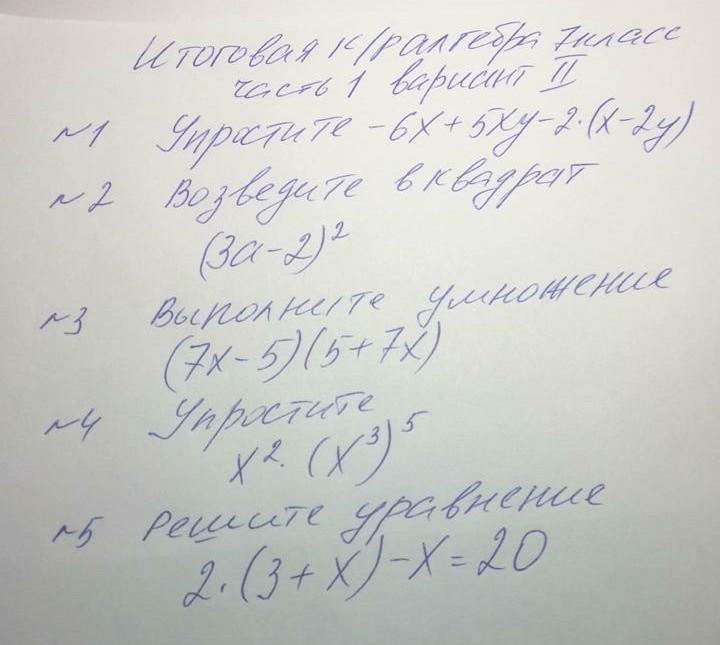 Итоговая к/р алгебра 7 класс
часть 1 вариант II
№1 Упростите -6x+5xy-2·(x-2y)
№2 Возведите в квадрат
(3a-2)²
№3 Выполните умножение
(7x-5)(5+7x)
№4 Упростите
x²·(x³)⁵
№5 Решите уравнение
2·(3+x)-x=20